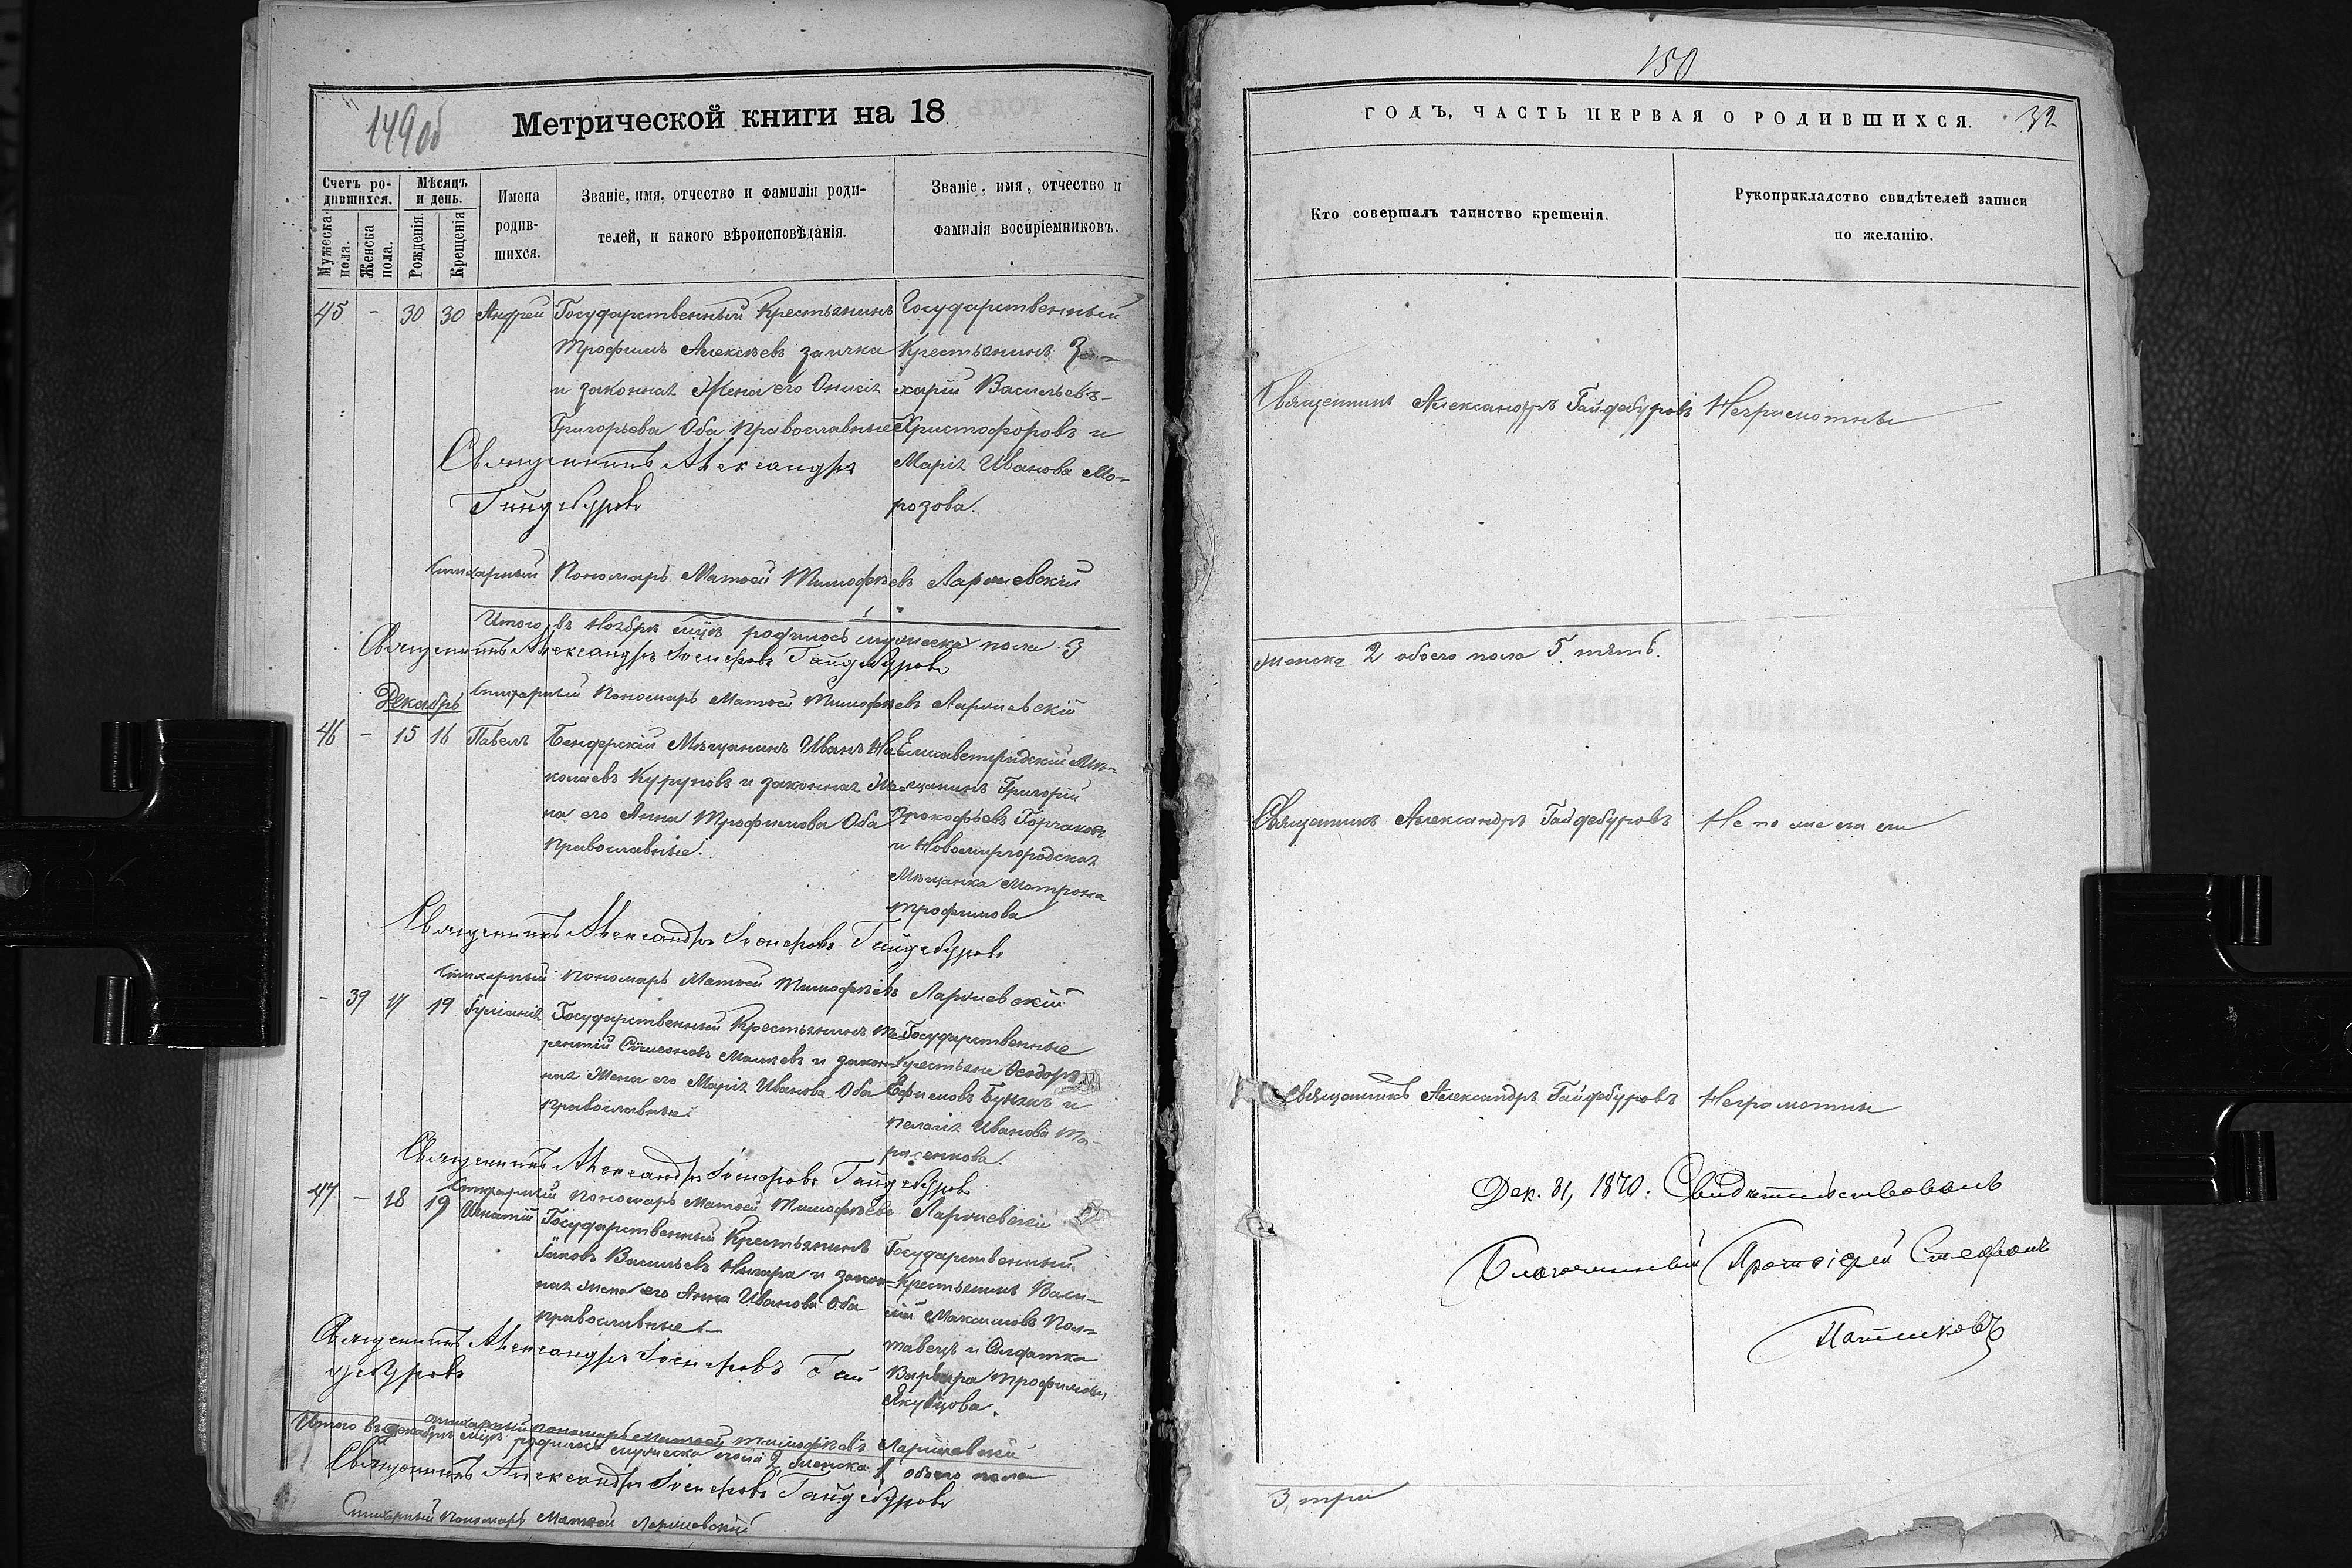 149 об
Метрической книги на 18
Счетъ ро-
дившихся.
Мѣсяцъ
и день.
Имена
родив-
шихся.
Званіе, имя, отчество и фамилія роди-
телей, и какого вѣроисповѣданія.
Званіе, имя, отчество и
фамилія воспріемниковъ.
Мужеска
пола.
Женска
пола.
Рожденія
Крещенія
45 - 30 30 Андрей
Государственный Крестьянинъ
Трофимъ Алексѣевъ Заичка
и законная Жена его
Григорьева Оба Православные
Государственный
Крестьянинъ За-
харій Васильевъ
Христофоровъ и
Марія Иванова Мо-
розова.
Священникъ Александръ
Гайдебуровъ
Стихарный Пономарь Матѳей Тимофѣевъ
Итого въ Ноябрѣ м-цѣ родилось мужеска пола 3
Священникъ Александръ Іосифовъ Гайдебуровъ
Стихарный Пономарь Матѳей Тимофѣевъ
Декабрь
46 - 15 16 Павелъ
Бендерскій Мѣщанинъ Иванъ Ни-
колаевъ Куруновъ и законная Же-
на его Анна Трофимова Оба
Православные.
Елисаветградскій Мѣ-
щанинъ Григорій
Прокофьевъ Горчаковъ
и Новомиргородская
Мѣщанка Матрона
Трофимова
Священникъ Александръ Іосифовъ Гайдебуровъ
Стихарный пономарь Матѳей Тимофѣевъ
- 39 17 19 Іуліанія
Государственный Крестьянинъ Те-
рентій Сѵмеоновъ и закон-
ная Жена его Марія Иванова Оба
Православные.
Государственные
Крестьяне Ѳеодоръ
Ефимовъ и
Пелагія Иванова Та-
расенкова.
Священникъ Александръ Іосифовъ Гайдебуровъ
Стихарный Пономарь Матѳей Тимофѣевъ
47 - 18 19 Игнатій
Государственный Крестьянинъ
Іаковъ Васильевъ и закон-
ная жена его Анна Иванова Оба
православные
Государственный
Крестьянинъ Васи-
лій Максимовъ Пол-
тавецъ и Солдатка
Варвара Трофимова
Якубцова.
Священникъ Александръ Іосифовъ Гай
дебуровъ
Стихарный пономарь Матѳей Тимофѣевъ
Итого въ декабрѣ м-цѣ родилось мужеска пола 2, женска 1 обоего пола
Священникъ Александръ Іосифовъ Гайдебуровъ
Стихарный Пономарь Матѳей
150
ГОДЪ, ЧАСТЬ ПЕРВАЯ О РОДИВШИХСЯ.
32
Кто совершалъ таинство крещенія.
Рукоприкладство свидѣтелей записи
по желанію.
Священникъ Александръ Гайдебуровъ Неграмотны
женска 2 обоего пола 5 пять.
Священникъ Александръ Гайдебуровъ Не пожелали
Священникъ Александръ Гайдебуровъ Неграмотны
Дек. 31, 1870. Свидѣтельствовалъ
Благочинный Протоіерей Стефанъ
3, три